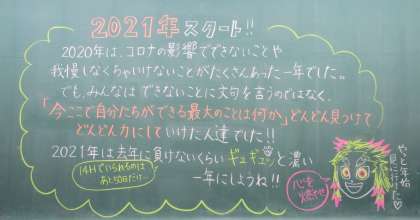 2021年スタート!!
2020年は、コロナの影響でできないことや
我慢しなくちゃいけないことがたくさんあった一年でした。
でも、みんなは できないことに文句を言うのではなく、
「今ここで自分たちができる最大のことは何か」どんどん見つけて
どんどん力にしていけた人達でした!!
2021年は去年に負けないくらい ギュギュッと濃い
一年にしようね!!
14日でいられるのは
あと50日だけ…
心を燃やせ
やっと年始
見にいけました